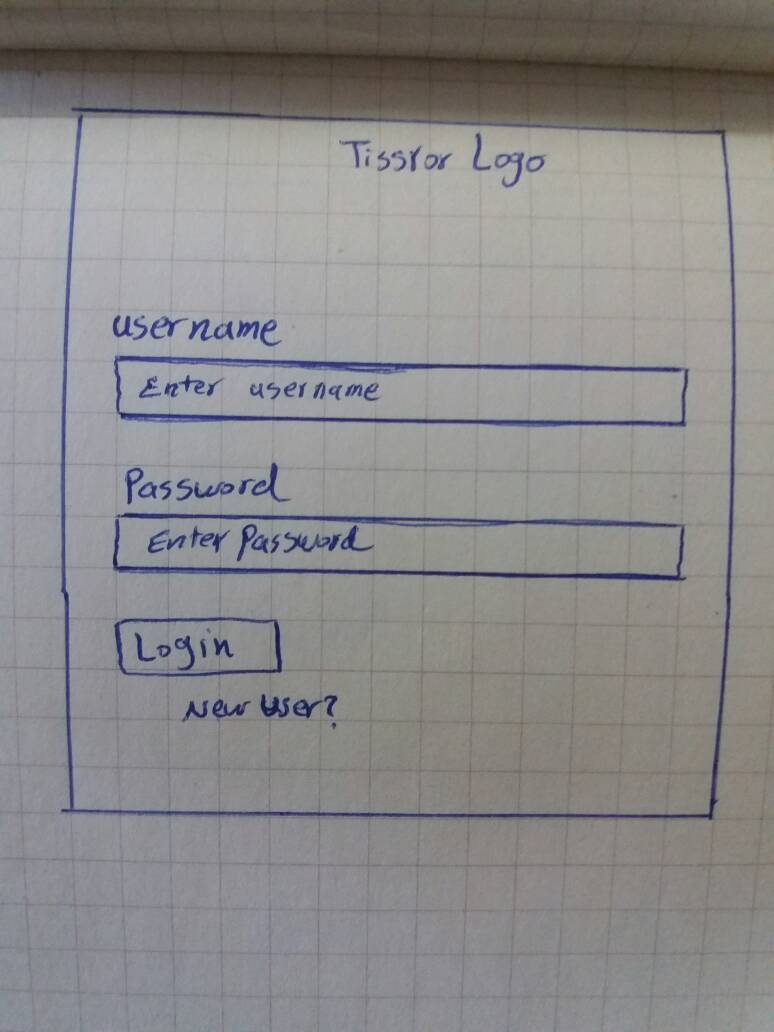 Tissror Logo
username
Enter username
Password
Enter Password
Login
New User?